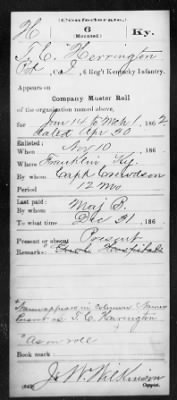 (Confederate.)
H 6 Ky.
(Mounted.)
T. C. Herrington
Pvt, Co. , 6 Reg't Kentucky Infantry.
Appears on
Company Muster Roll
of the organization named above,
for Jan 14 to Mch 1, 1862
dated Apr 30
Enlisted:
When Nov 10, 186
Where Franklin, Ky.
By whom Capt
Period 12 mo
Last paid:
By whom Maj B.
To what time Dec 31, 186
Present or absent Present
Remarks: Hospital
*Name appears in column Names
Present as T. C. Harrington
*As on roll
Book mark:
J. W. Wilkinson
Copyist.